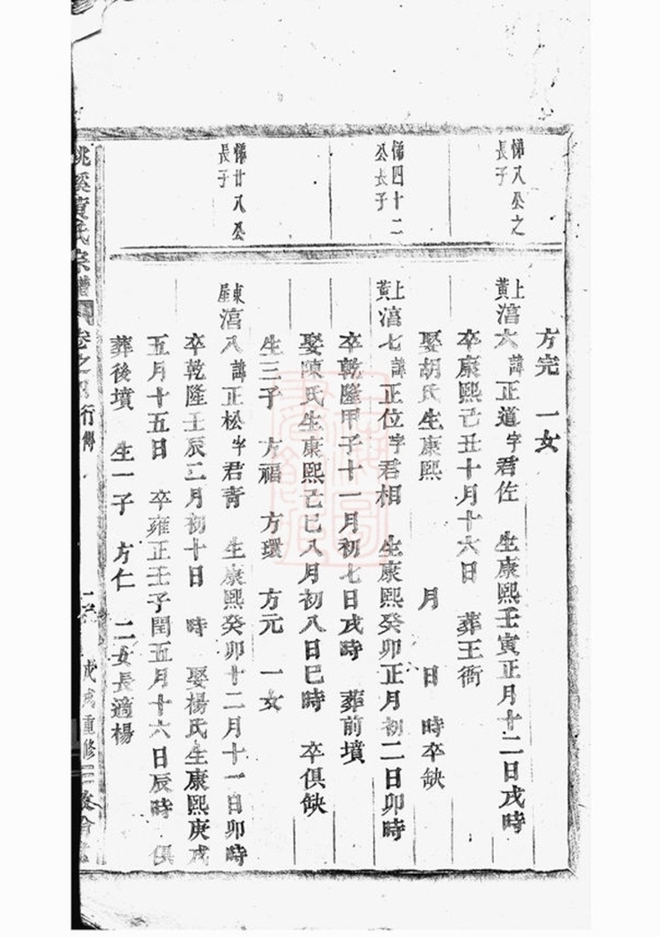 悌八公之
長子
悌四十二
公長子
悌廿八公
長子
方完 一女
上黃 湻六 諱正道字君佐 生康熙壬寅正月十二日戌時
卒康熙己丑十月十六日 葬王衕
娶胡氏生康熙 月 日 時卒缺
上黃 湻七 諱正位字君相 生康熙癸卯正月初二日卯時
卒乾隆甲子十一月初七日戌時 葬前墳
娶陳氏生康熙己巳八月初八日巳時 卒俱缺
生三子 方福 方環 方元 一女
東屋 湻八 諱正松字君青 生康熙癸卯十二月十一日卯時
卒乾隆壬辰二月初十日 時 娶楊氏生康熙庚戌
五月十五日 卒雍正壬子閏五月十六日辰時 俱
葬後墳 生一子 方仁 二女長適楊
溪黃氏宗譜 卷之 行傳 戊戌重修